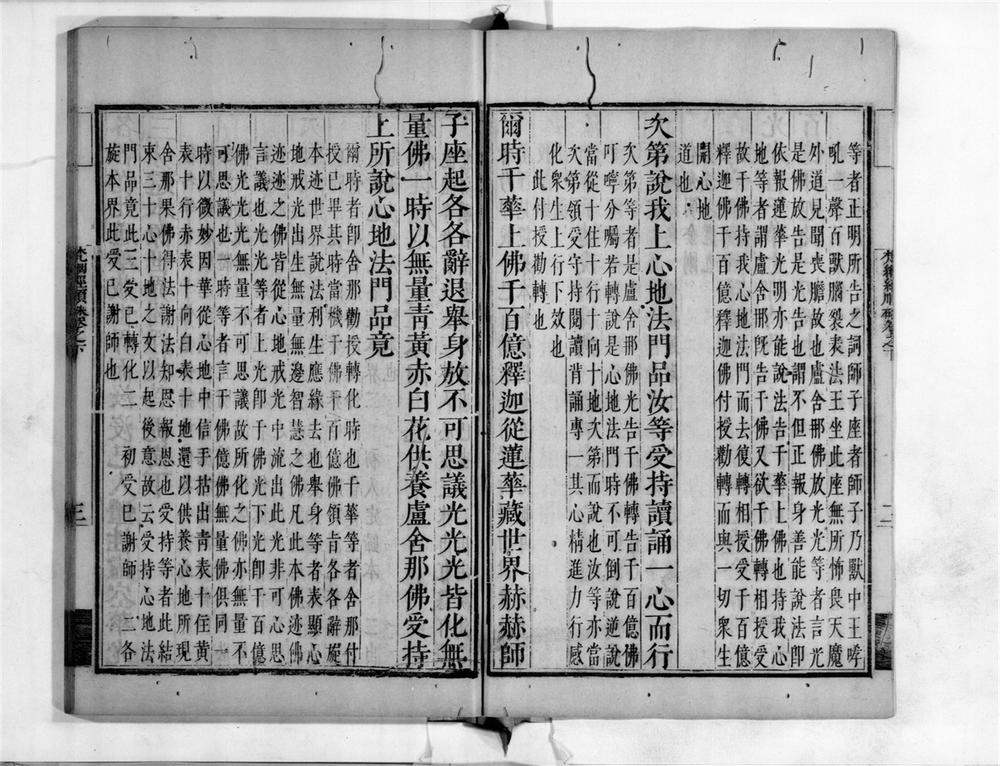 等者正明所告之詞師子座者師子乃獸中王哮
吼一聲百獸腦裂表法王坐此座無所怖畏天魔
外道見聞喪膽故也盧舍那佛放光光等者言光
是佛放告是光告也謂不但正報身善能說法即
依報蓮華光明亦能說法告千華上佛也持我心
地等者謂盧舍那旣告千佛又欲千佛轉相授受
故千佛持我心地法門而去復轉相授受千百億
釋迦佛千百億釋迦佛付授勸轉而與一切衆生
開心地
道也
次第說我上心地法門品汝等受持讀誦一心而行
次第等者是盧舍那佛光告千佛轉告千百億佛
叮嚀分囑若轉說是心地法門時不可倒說逆說
當從十住十行十向十地次第而說也汝等亦當
次第領受守持閱讀背誦專一其心精進力行感
化衆生上行下效也
此付授勸轉也
爾時千華上佛千百億釋迦從蓮華藏世界赫赫師
子座起各各辭退舉身放不可思議光光光皆化無
量佛一時以無量青黃赤白花供養盧舍那佛受持
上所說心地法門品竟
爾時者卽舍那勸授轉化時也千華等者舍那付
授已畢其時當機千佛千百億佛領旨各各辭旋
本迹世界說法利生應緣去也舉身等者表顯心
地戒光出生無量無邊智慧之佛凡此本佛迹佛
迹迹之佛皆從心地戒光中流出此光非可心思
言議也光光等者上光卽千佛光下光卽千百億
佛光光光無量不可思議故所化之佛亦無量不
可思議也一時等者言千佛億佛無量佛俱同一
時以微妙因華從心地中信手拈出青表十住黃
表十行赤表十向白表十地還以供養心地所現
舍那果佛得法謝法知恩報恩也受持等者此結
束三十心十地之文以起後意故云受持心地法
門品竟此三受已轉化二 初受已謝師 二各
旋本界此受已謝師也